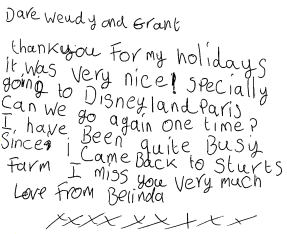 Dare Wendy and Grant
thankyou for my holidays
it was very nice! specially
going to Disneyland Paris
Can we go again one time?
I, have Been quite Busy
Since i Came Back to Sturts
Farm I miss you very much
Love From Belinda
xxxx xx x x x